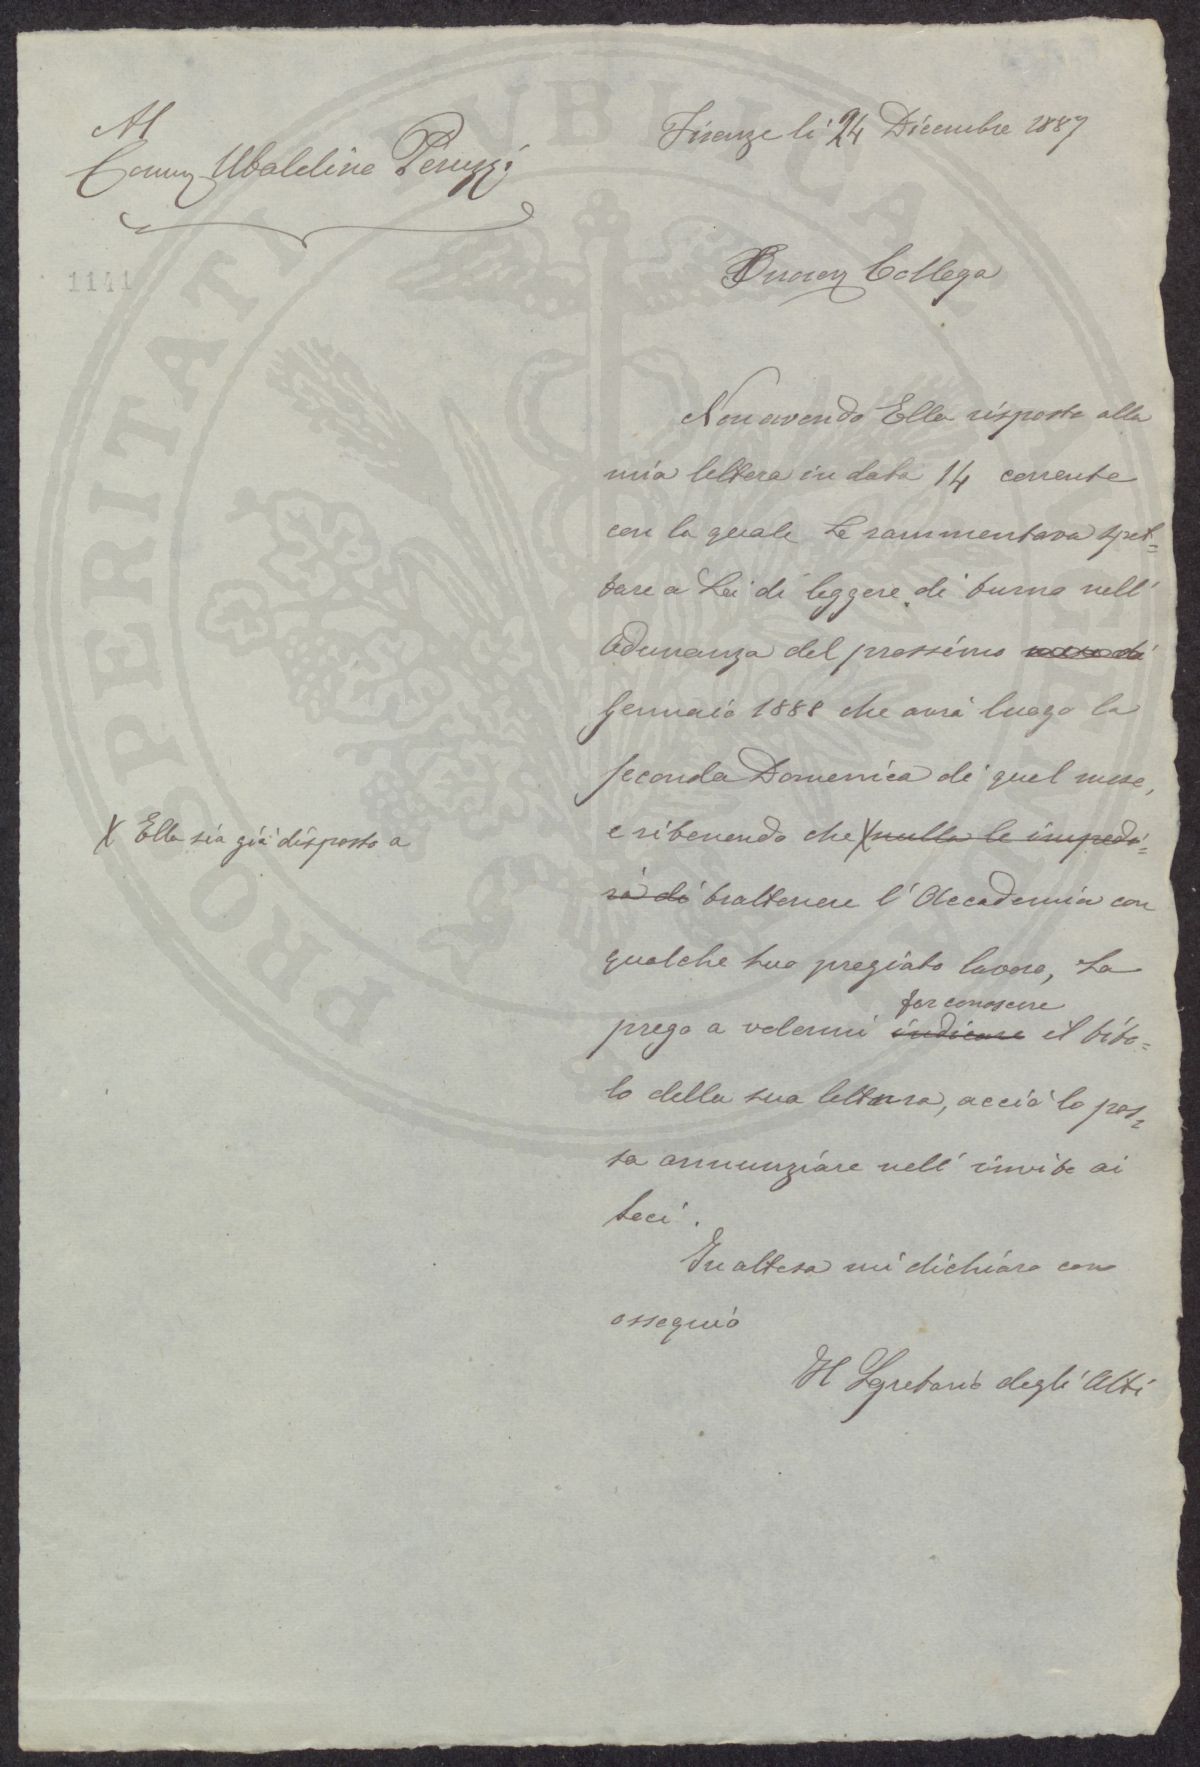 Al
Comm Ubaldino Peruzzi
1141
Firenze lì 24 Dicembre 1887
Onorev Collega
Non avendo Ella risposto alla
mia lettera in data 14 corrente
con la quale Le rammentava spet=
tare a Lei di leggere di turno nell'
Adunanza del prossimo mese di
Gennaio 1888 che avrà luogo la
seconda Domenica di quel mese,
e ritenendo che X nulla le impedi=
rà di trattenere l'Accademia con
X Ella sia già disposto a
qualche suo pregiato lavoro, La
far conoscere
prego a volermi indicare il tito=
lo della sua lettura, acciò lo pos=
sa annunziare nell'invito ai
soci.
In attesa mi dichiaro con
ossequio
Il Segretario degli Atti
PROSPERITATI PUBLICAE